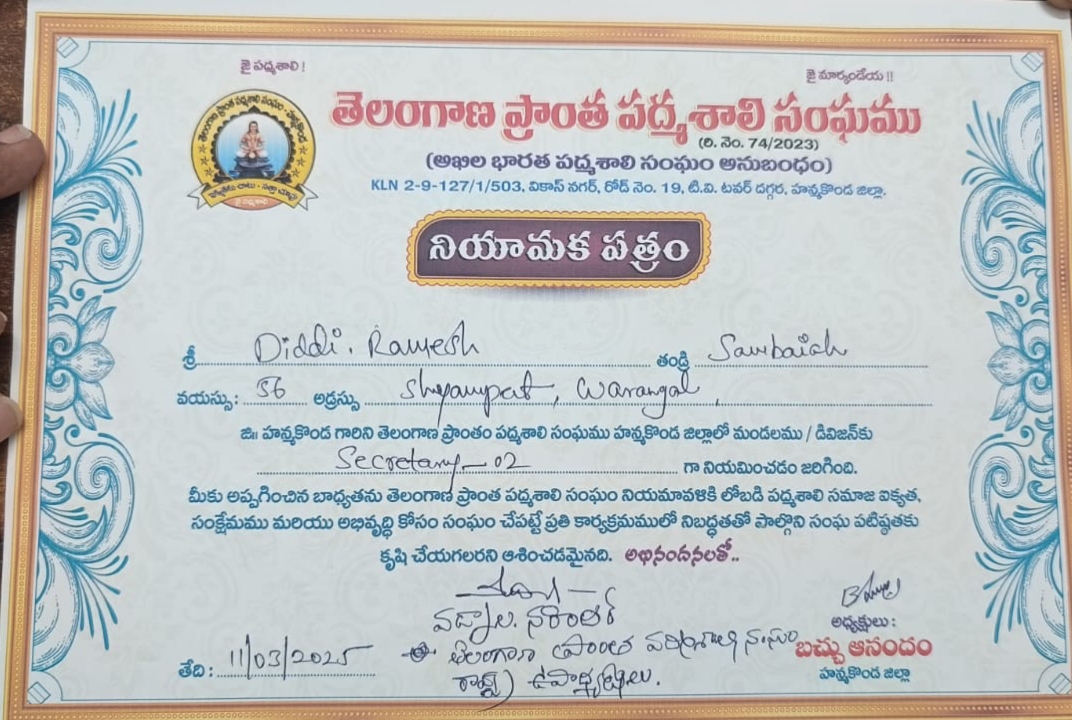 జై పద్మశాలి !
జై మార్కండేయ !!
తెలంగాణ ప్రాంత పద్మశాలి సంఘము
(రి. నెం. 74/2023)
(అఖిల భారత పద్మశాలి సంఘం అనుబంధం)
KLN 2-9-127/1/503, వికాస్ నగర్, రోడ్ నెం. 19, టి.వి. టవర్ దగ్గర, హన్మకొండ జిల్లా.
జై పద్మశాలి
నియామక పత్రం
శ్రీ Diddi. Ramesh తండ్రి Sambaiah
వయస్సు: 56 అడ్రస్సు Shyampet, Warangal,
జి॥ హన్మకొండ గారిని తెలంగాణ ప్రాంతం పద్మశాలి సంఘము హన్మకొండ జిల్లాలో మండలము / డివిజన్‌కు
Secretary-02 గా నియమించడం జరిగింది.
మీకు అప్పగించిన బాధ్యతను తెలంగాణ ప్రాంత పద్మశాలి సంఘం నియమావళికి లోబడి పద్మశాలి సమాజ ఐక్యత,
సంక్షేమము మరియు అభివృద్ధి కోసం సంఘం చేపట్టే ప్రతి కార్యక్రమములో నిబద్ధతతో పాల్గొని సంఘ పటిష్ఠతకు
కృషి చేయగలరని ఆశించడమైనది. అభినందనలతో..
తెలంగాణ ప్రాంత పద్మశాలి సంఘం
రాష్ట్ర ఉపాధ్యక్షులు.
అధ్యక్షులు:
బచ్చు ఆనందం
హన్మకొండ జిల్లా
తేది: 11/03/2025